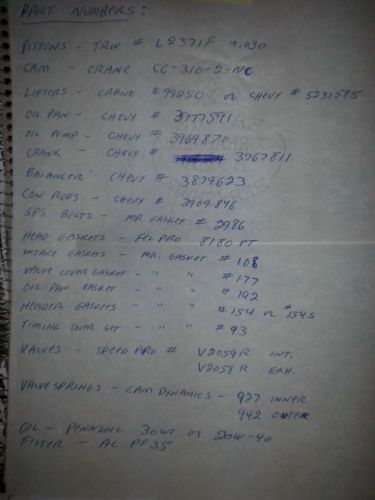 PART NUMBERS:
PISTONS - TRW # L2371F +.030
CAM - CRANE CC-310-2-NC
LIFTERS - CRANE #99250 or CHEVY # 5231585
OIL PAN - CHEVY # 3977591
OIL PUMP - CHEVY # 3969870
CRANK - CHEVY # 3967811
BALANCER CHEVY # 3879623
CON RODS - CHEVY # 3909846
SPS BOLTS - MR GASKET # 2986
HEAD GASKETS - FEL PRO 8180 PT
INTAKE GASKETS - MR. GASKET # 108
VALVE COVER GASKET - " " # 177
OIL PAN GASKET - " " # 192
HEADER GASKETS - " " # 154 or #154S
TIMING COVER SET - " " # 93
VALVES - SPEED PRO # V2059R INT.
V2058R EXH.
VALVE SPRINGS - CAM DYNAMICS - 927 INNER
942 OUTER
OIL - PENNZOIL 30WT or 20W-40
FILTER - AC PF35